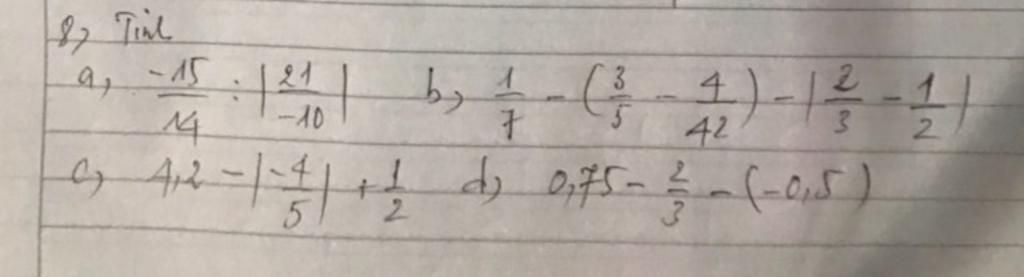 8, Tính
a, -15/14 : |21/-10| b, 1/7 - (3/5 - 4/42) - |2/3 - 1/2|
c, 4,2 - |-4/5| + 1/2 d, 0,75 - 2/3 - (-0,5)